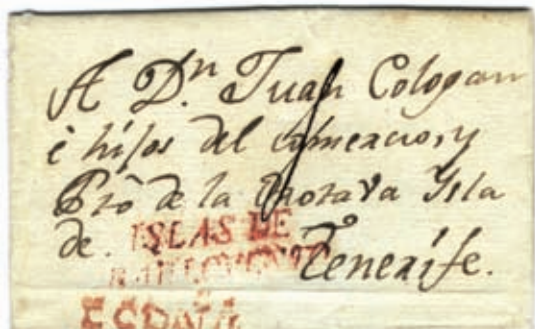 A D.n Juan Cologan
è hijos del comercio, y
Pto de la Orotava Ysla
de. Tenerife.
ISLAS DE
BARLOVENTO
ESPAÑA